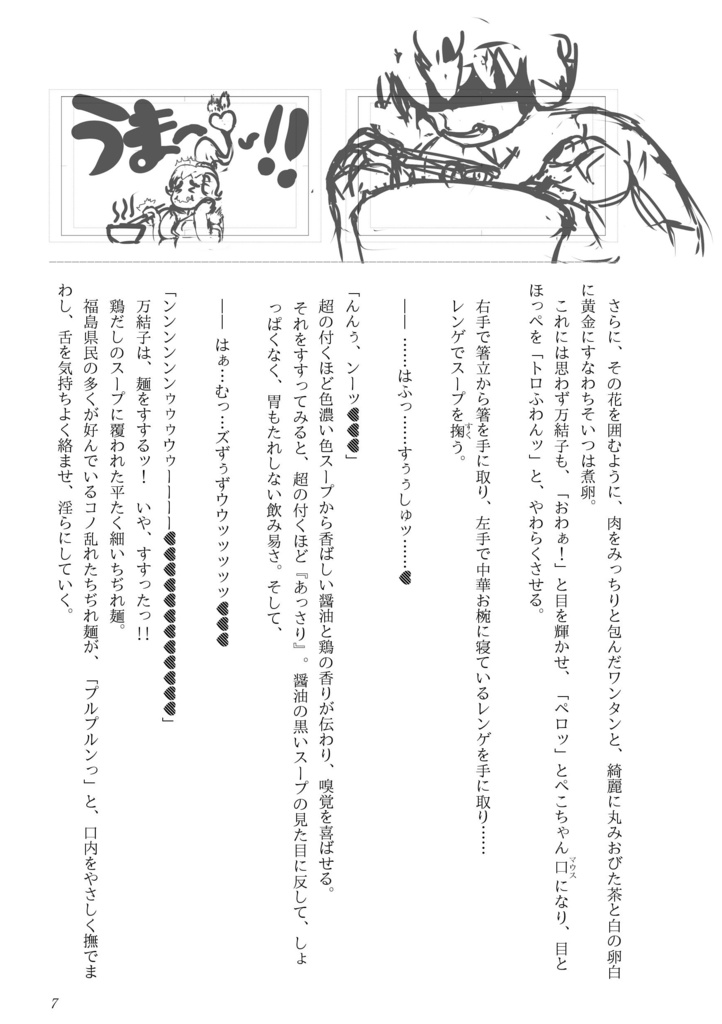 うま〜〜!!
さらに、その花を囲むように、肉をみっちりと包んだワンタンと、綺麗に丸みおびた茶と白の卵白
に黄金にすなわちそいつは煮卵。
これには思わず万結子も、「おわぁ！」と目を輝かせ、「ペロッ」とぺこちゃん口になり、目と
マウス
ほっぺを「トロふわんッ」と、やわらくさせる。
右手で箸立から箸を手に取り、左手で中華お椀に寝ているレンゲを手に取り……
レンゲでスープを掬う。
すく
―― ……はふっ……すぅぅしゅッ……♥
「んんぅ、ンーッ♥♥♥」
超の付くほど色濃い色スープから香ばしい醤油と鶏の香りが伝わり、嗅覚を喜ばせる。
それをすすってみると、超の付くほど『あっさり』。醤油の黒いスープの見た目に反して、しょ
っぱくなく、胃もたれしない飲み易さ。そして、
―― はぁ…むっ…ズずぅずウウッッッッッ♥♥♥
「ンンンンンンゥゥゥウゥーーーー♥♥♥♥♥♥♥♥♥♥♥♥」
万結子は、麺をすするッ！　いや、すすったっ!!
鶏だしのスープに覆われた平たく細いちぢれ麺。
福島県民の多くが好んでいるコノ乱れたちぢれ麺が、「プルプルンっ」と、口内をやさしく撫でま
わし、舌を気持ちよく絡ませ、淫らにしていく。
7